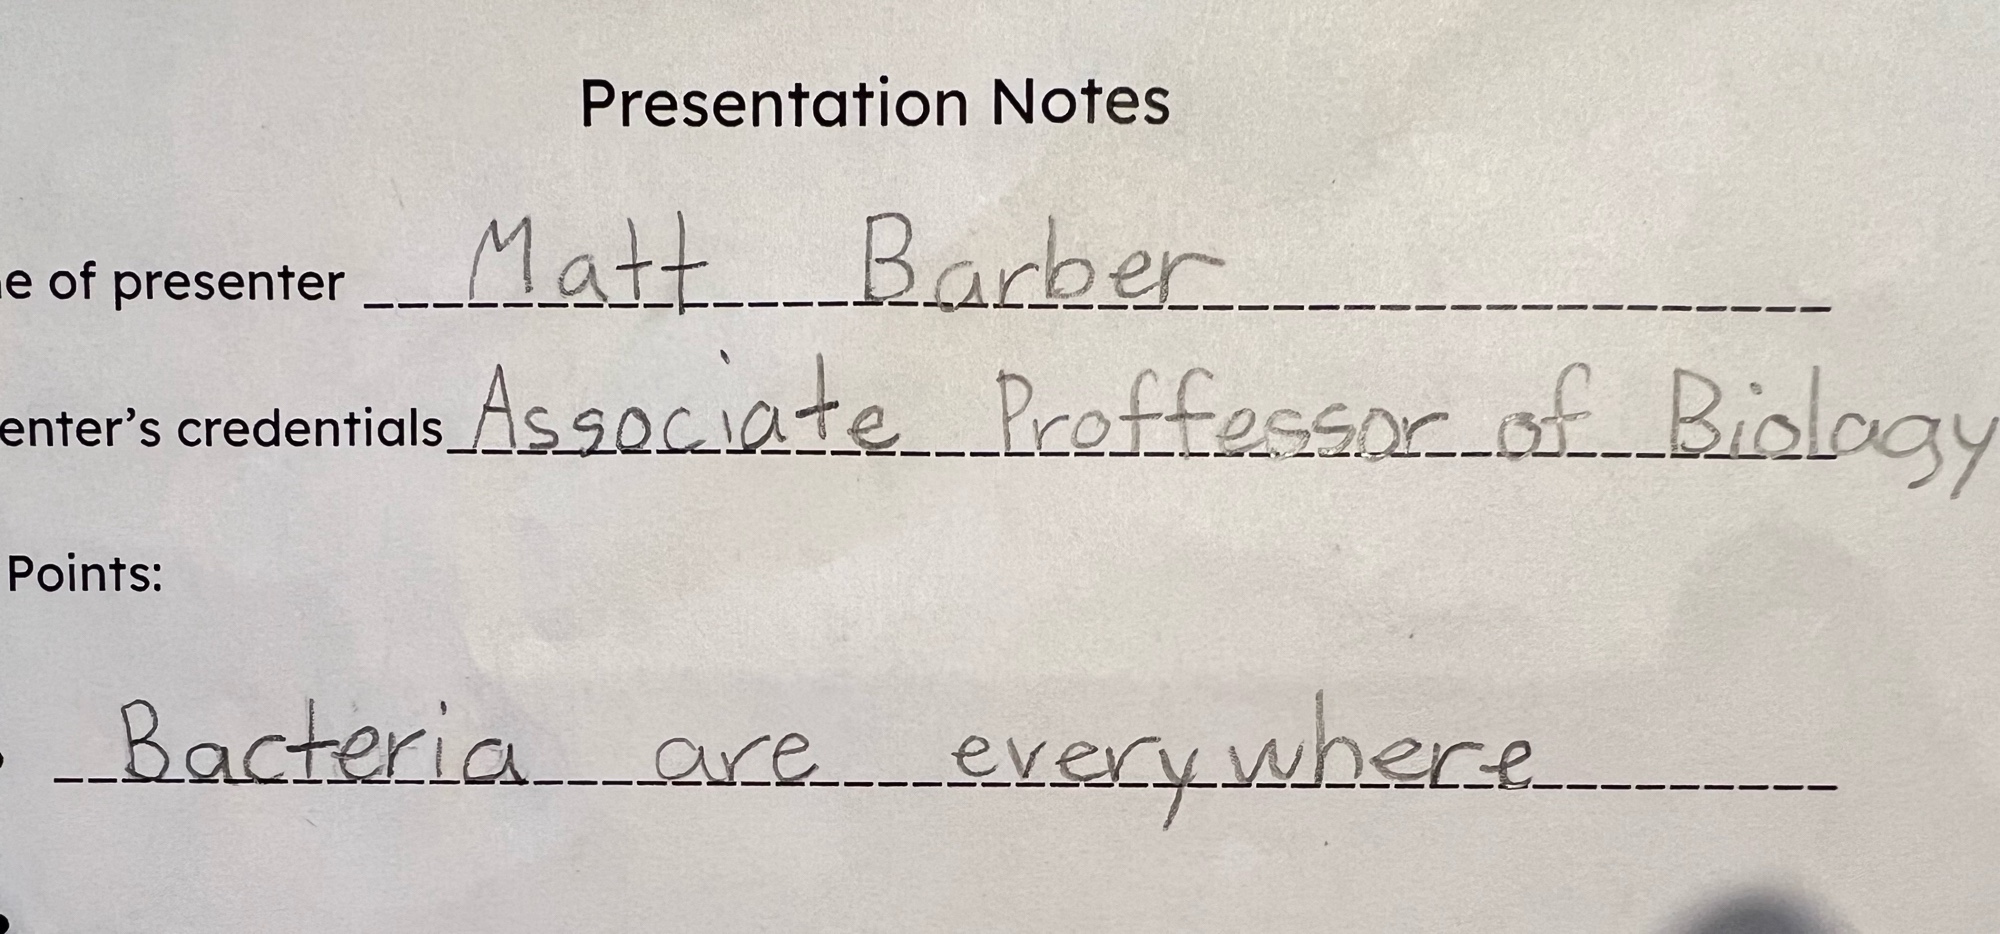 Presentation Notes
e of presenter Matt Barber
enter's credentials Associate Proffessor of Biology
Points:
Bacteria are everywhere